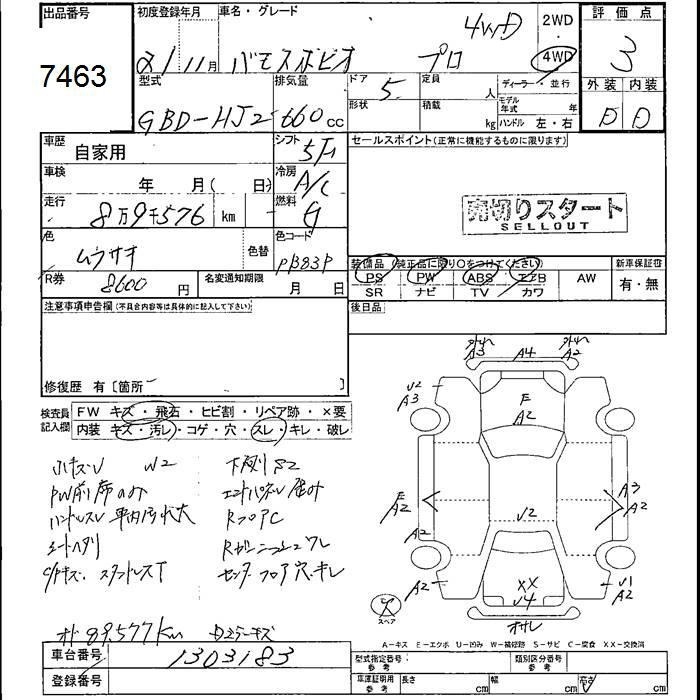 出品番号
7463
初度登録年月 車名・グレード
21年 11月 バモスホビオ プロ 4WD
2WD
4WD
評価点
3
型式 排気量 ドア 定員 ディーラー・並行
GBD-HJ2 660cc 5 人
形状 積載 モデル年式 年
kg ハンドル 左・右
外装 内装
D D
車歴 自家用 シフト 5F
セールスポイント(正常に機能するものに限ります)
車検 年 月( 日) 冷房 A/C
走行 8万9千576 km 燃料 G
売切りスタート
SELLOUT
色 ムラサキ 色替 色コード PB83P
装備品 (純正品に限り○をつけてください) 新車保証書
PS PW ABS エアB AW 有・無
SR ナビ TV カワ
R券 8600 円 名変通知期限 月 日
後日品
注意事項申告欄(不具合内容等は具体的に記入して下さい)
修復歴 有〔箇所 〕
検査員記入欄 FW キズ・飛石・ヒビ割・リペア跡・×要
内装 キズ・汚レ・コゲ・穴・スレ・キレ・破レ
小キズU W2 下廻りS2
PW前席のみ
ハンドルスレ 車内汚れ大
RフロアC
シートヘタリ
スタッドレスT センターフロア穴・キレ
オド 89,577Km
車台番号 1303183
登録番号
A3 A4 A2
U2
A3
E
A2
E
A2
U2
A3
A2
A2
A2
XX
U4
U1
A2
スペア
A-キズ E-エクボ U-凹み W-補修跡 S-サビ C-腐食 XX-交換済
型式指定番号参考 類別区分番号参考
車庫証明用参考 長さ cm 幅 cm 高さ cm